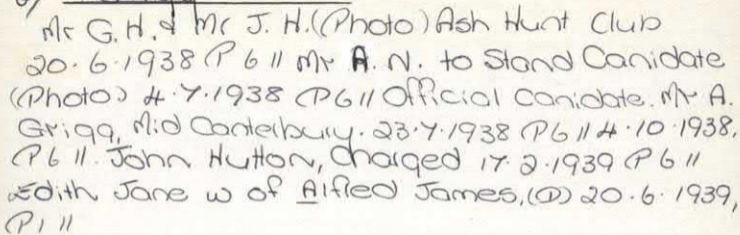 Mr G. H. & Mr J. H. (Photo) Ash Hunt Club
20.6.1938 (P6 // Mr A. N. to Stand Canidate
(Photo) 4.7.1938 (P6 // Official Canidate. Mr A.
Grigg, Mid Canterbury. 23.7.1938 (P6 // 4.10.1938,
(P6 //. John Hutton, charged 17.2.1939 (P6 //
Edith Jane w of Alfred James, (D) 20.6.1939,
(P1 //